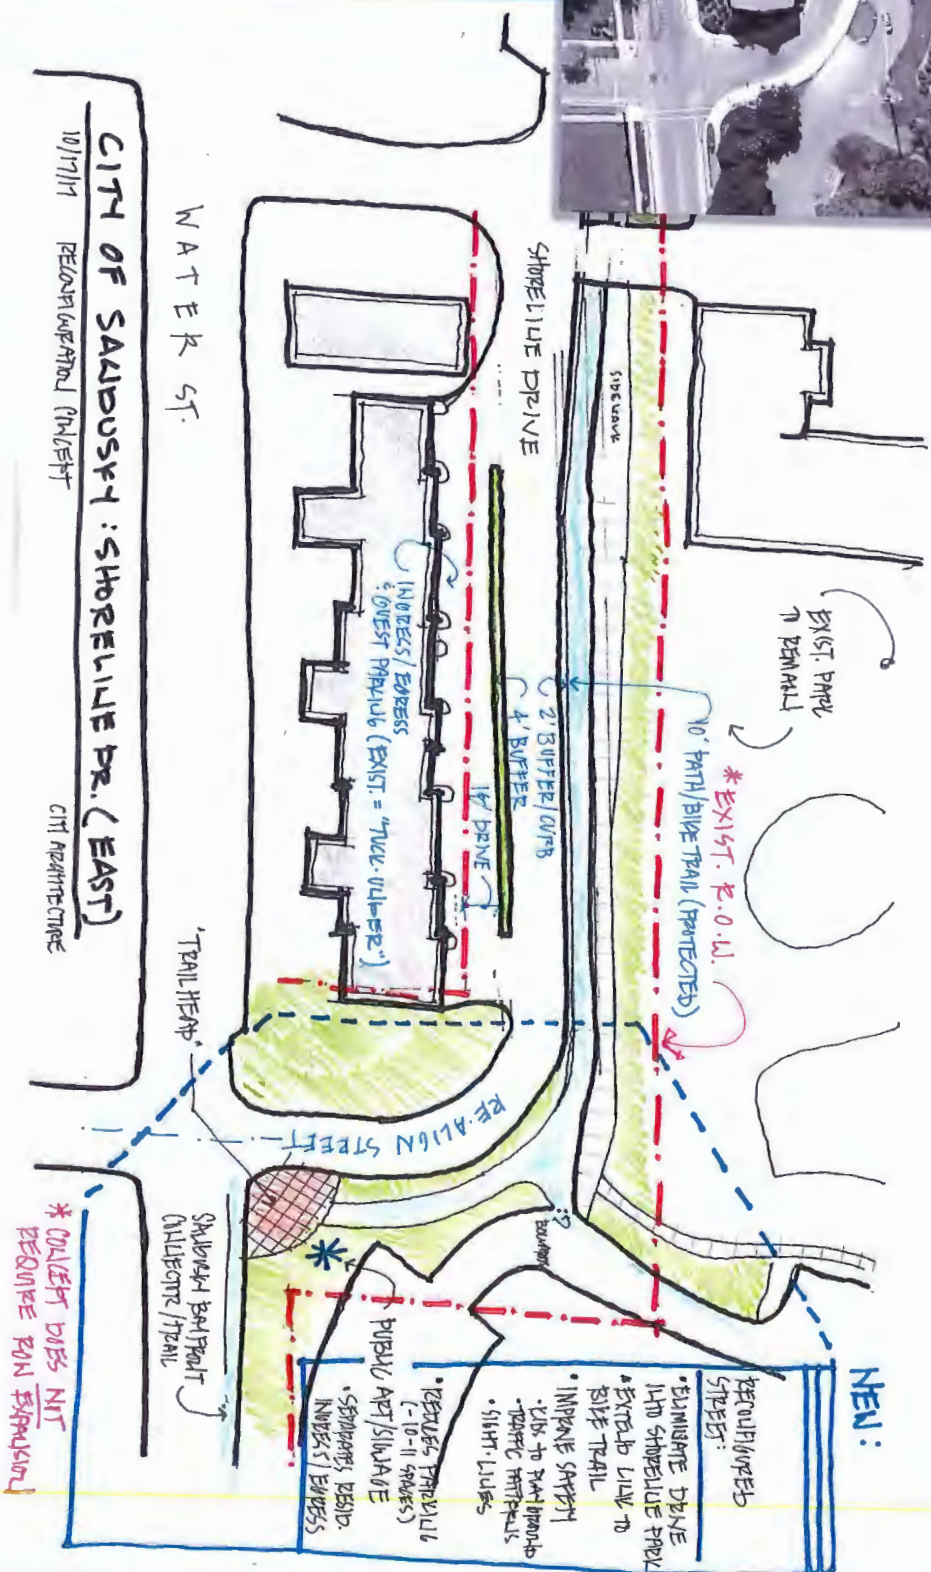 CITY OF SANDUSKY: SHORELINE DR. (EAST)
10/17/17 RECONFIGURATION CONCEPT
CITY ARCHITECTURE
WATER ST.
SHORELINE DRIVE
SIDEWALK
EXIST. PARK
TO REMAIN
* EXIST. R.O.W.
10' PATH/BIKE TRAIL (PROTECTED)
2' BUFFER/CURB
4' BUFFER
16' DRIVE
INGRESS/EGRESS
& GUEST PARKING (EXIST. = "TUCK-UNDER")
"TRAILHEAD"
RE-ALIGN STREET
SANDUSKY BAYFRONT
CONNECTOR/TRAIL
PUBLIC ART/SIGNAGE
* CONCEPT DOES NOT
REQUIRE ROW EXPANSION
NEW:
RECONFIGURED
STREET:
• ELIMINATE DRIVE
INTO SHORELINE PARK
• EXTEND LINK TO
BIKE TRAIL
• IMPROVE SAFETY
- KIDS TO PLAYGROUND
- TRAFFIC PATTERNS
- SIGHT-LINES
• REDUCES PARKING
(~10-11 SPACES)
• SEPARATES RESID.
INGRESS/EGRESS